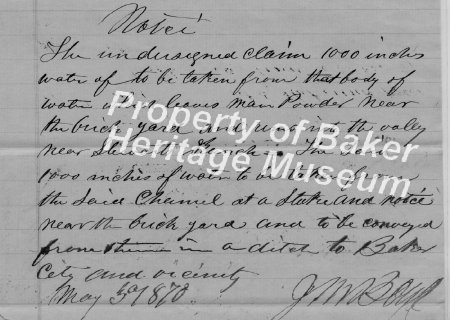 Notice
The undersigned claim 1000 inches
water of to be taken from that body of
water which leaves main Powder near
the brick yard and runs into the valley
near
1000 inches of water to be taken from
the Said Channel at a Stake and notice
near the brick yard and to be conveyed
from in a ditch to Baker
City and vicinity
May 3d 1870
Property of Baker
Heritage Museum